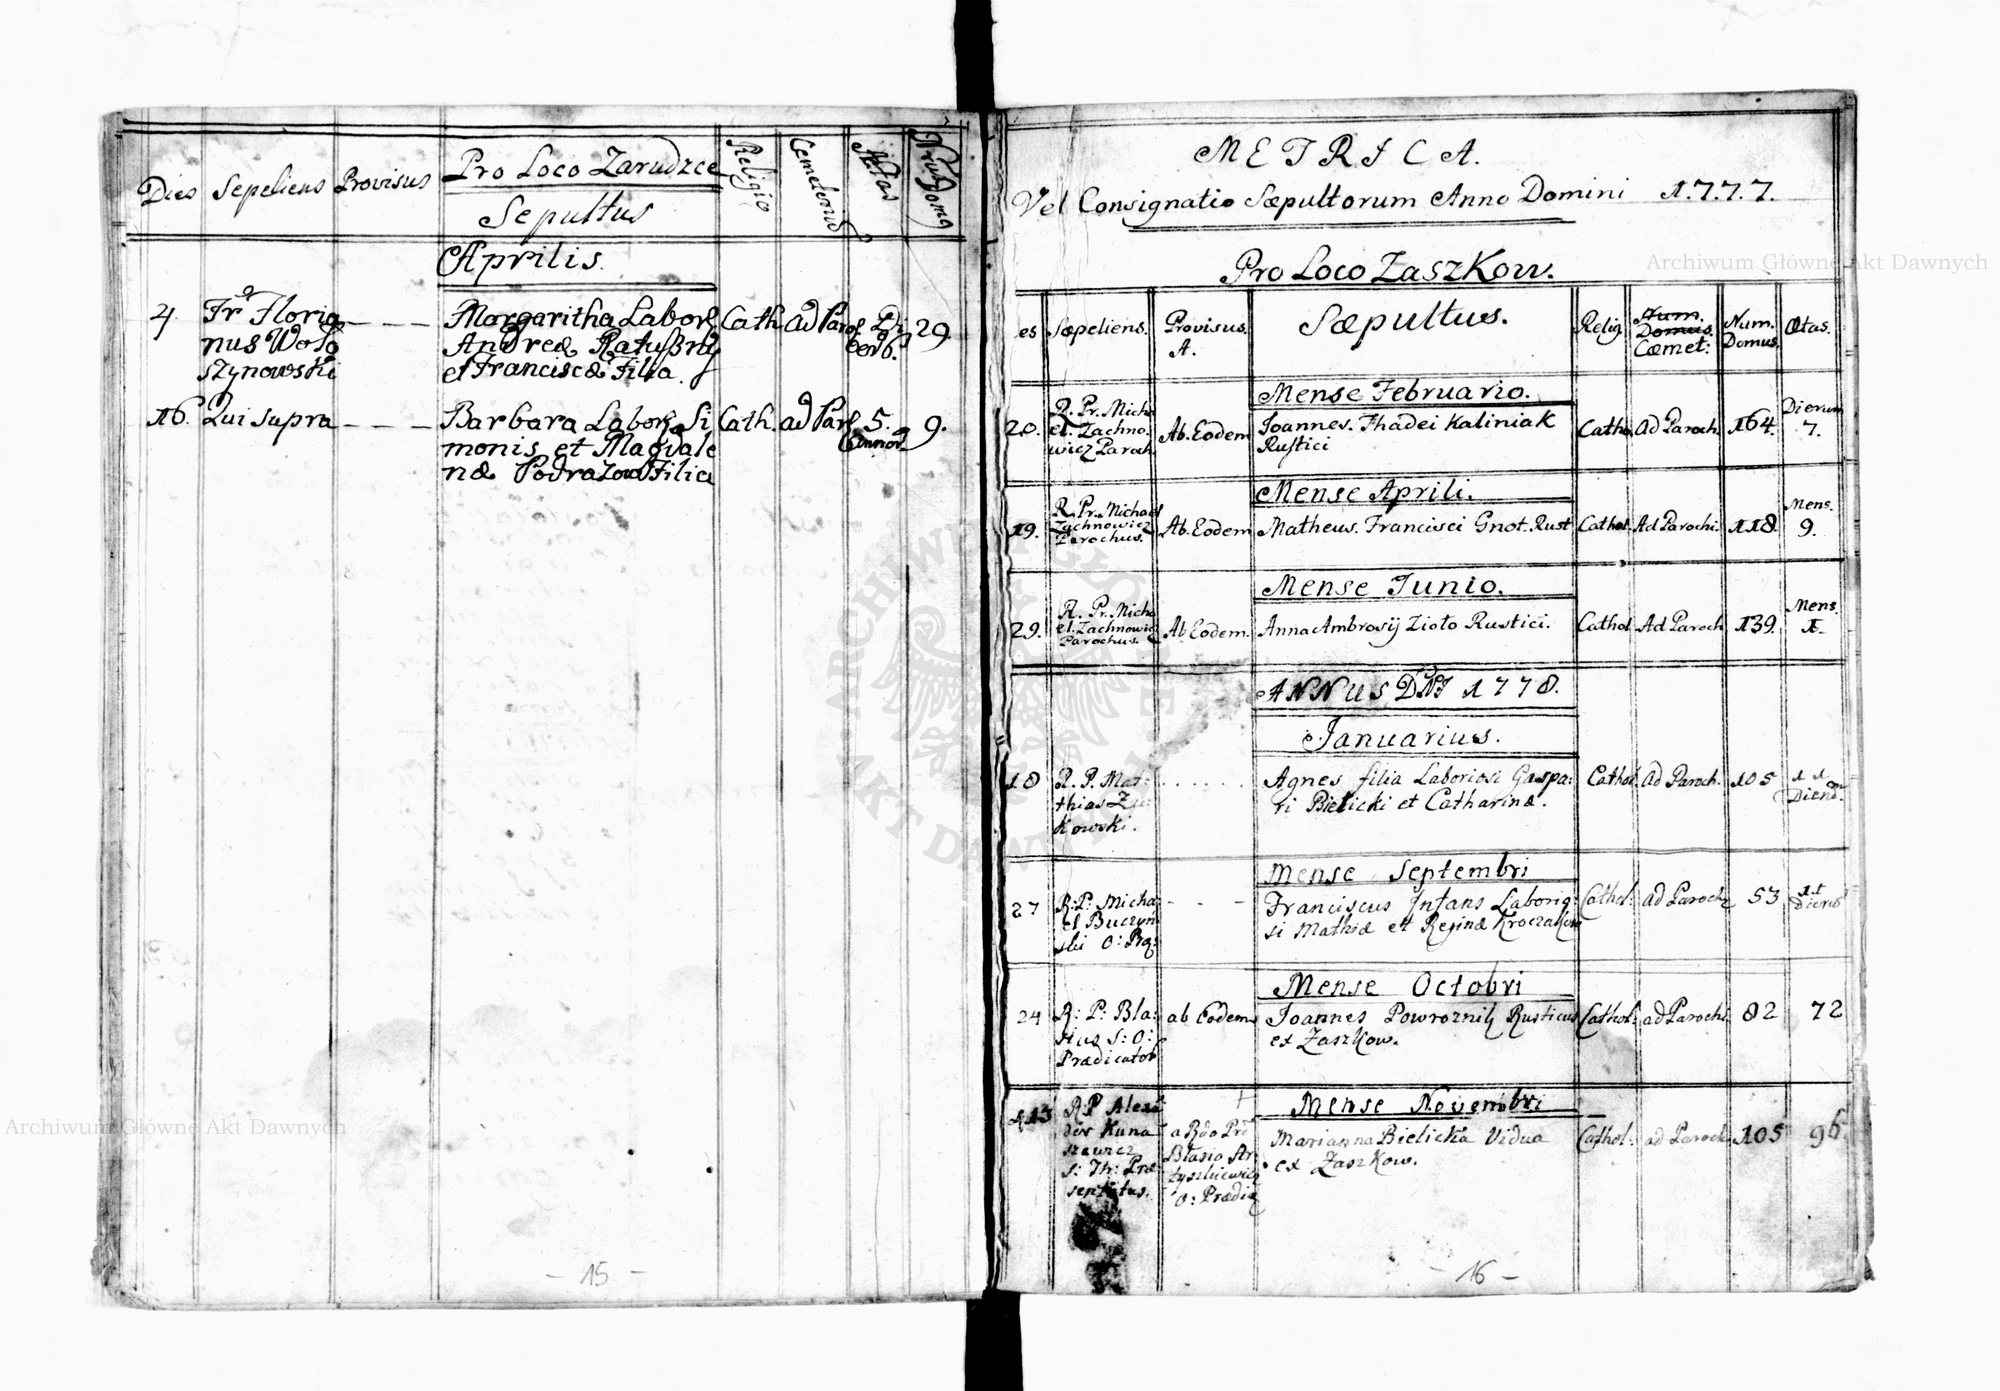 Pro Loco Zarudzce
Dies Sepeliens Provisus Sepultus Religio Cemeterium Aetas Nrus Domq
Aprilis.
4 Fr Floria
nus Woło
szynowski
Margaritha Labor
Andreæ Ratuszny
et Franciscæ Filia.
Cath. ad Paro 29
16. Qui supra
Barbara Labor Si
monis et Magdale
næ Filia
Cath. ad Par 5. 9.
Annor.
- 15 -
METRICA.
Vel Consignatio Sæpultorum Anno Domini 1.7.7.7.
Pro Loco Zaszkow.
es Sæpeliens. Provisus. A. Sæpultus. Relig Num. Domus. Cæmet: Num. Domus. Ætas.
Mense Februario.
20. R. Pr. Micha
el. Zachno.
wicz Paroch.
Ab. Eodem
Joannes. Thadei Kaliniak
Rustici
Catho. Ad Paroch. 164. Dierum
7.
Mense Aprili.
19. R. Pr. Michael
Zachnowicz
Parochus.
Ab. Eodem
Matheus. Francisci Gnot. Rust
Cathol. Ad Parochi. 118. Mens.
9.
Mense Junio.
29. R. Pr. Micha
el. Zachnowicz
Parochus.
Ab. Eodem.
Anna Ambrosij Zioło Rustici.
Cathol Ad Paroch 139. Mens.
1.
ANNUS DNI 1778.
Januarius.
18 R. P. Mat:
thias
kowski.
Agnes filia Laboriosi Gaspa:
ri Bielicki et Catharinæ.
Cathol. ad Paroch. 105 11
Mense Septembri
27 R: P: Micha
el Buczyn
ski O: Pr:
Franciscus Infans Laborio:
si Mathiæ et Reginæ
Cathol: ad Paroch 53 11
Mense Octobri
24 R: P: Bla:
sius S: O:
Prædicator
ab Eodem
Joannes Powroznik Rusticus
ex Zaszkow.
Cathol: ad Parochi. 82 72
Mense Novembri
13 R P Alexa
der Kuna
szewicz
S: Th: Præ
sentatus.
a Rdo Pre
Błasio Ar
tyszkiewicz
O: Prædic
Marianna Bielicka Vidua
ex Zaszkow.
Cathol: ad Paroch 105 96
- 16 -
Archiwum Główne Akt Dawnych
Archiwum Główne Akt Dawnych
ARCHIWUM GŁÓWNE AKT DAWNYCH